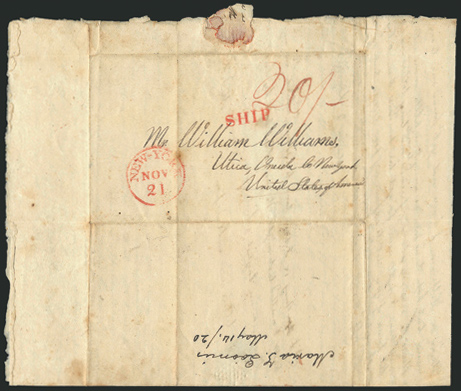 20/-
SHIP
Mr William Williams,
Utica, Oneida Co Newyork
United States of America
NEW-YORK
NOV
21
Maria T. Loomis
May 14./20